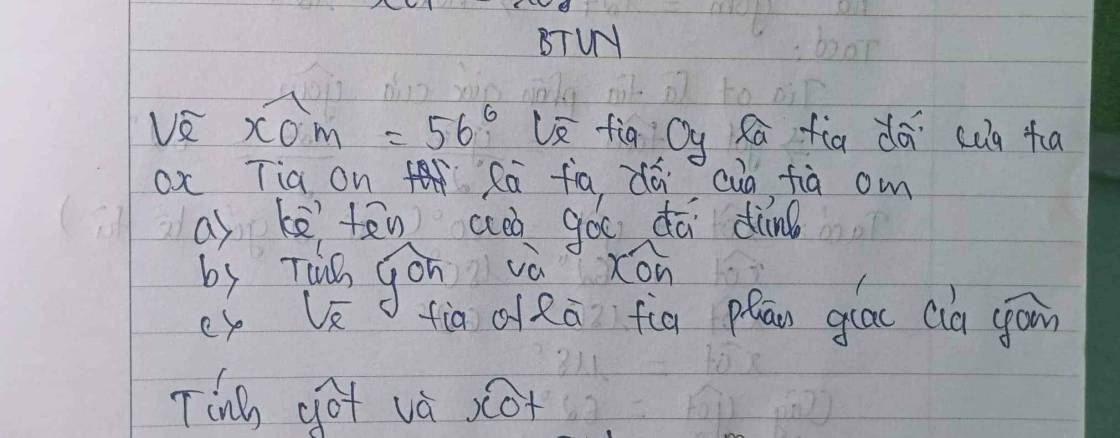 BTVN
Vẽ xôm = 56° Vẽ tia Oy là tia đối của tia
ox Tia on là tia đối của tia om
a) kể tên các góc đối đỉnh
b) Tính yôn và xôn
c) Vẽ tia ot là tia phân giác của yôm
Tính yôt và xôt